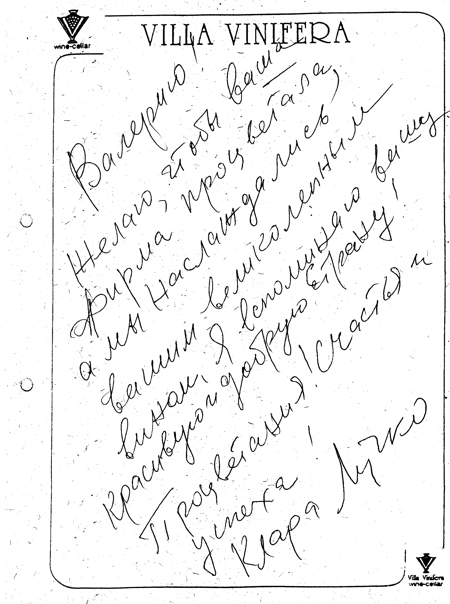 wine-cellar
VILLA VINIFERA
Валерию!
Желаю, чтобы ваша
фирма, процветала,
а мы наслаждались,
вашим великолепным
вином, я вспоминаю вашу
красивую и добрую страну!
Процветания! Счастья и
успеха!
Клара Лучко
Villa Vinifera
wine-cellar